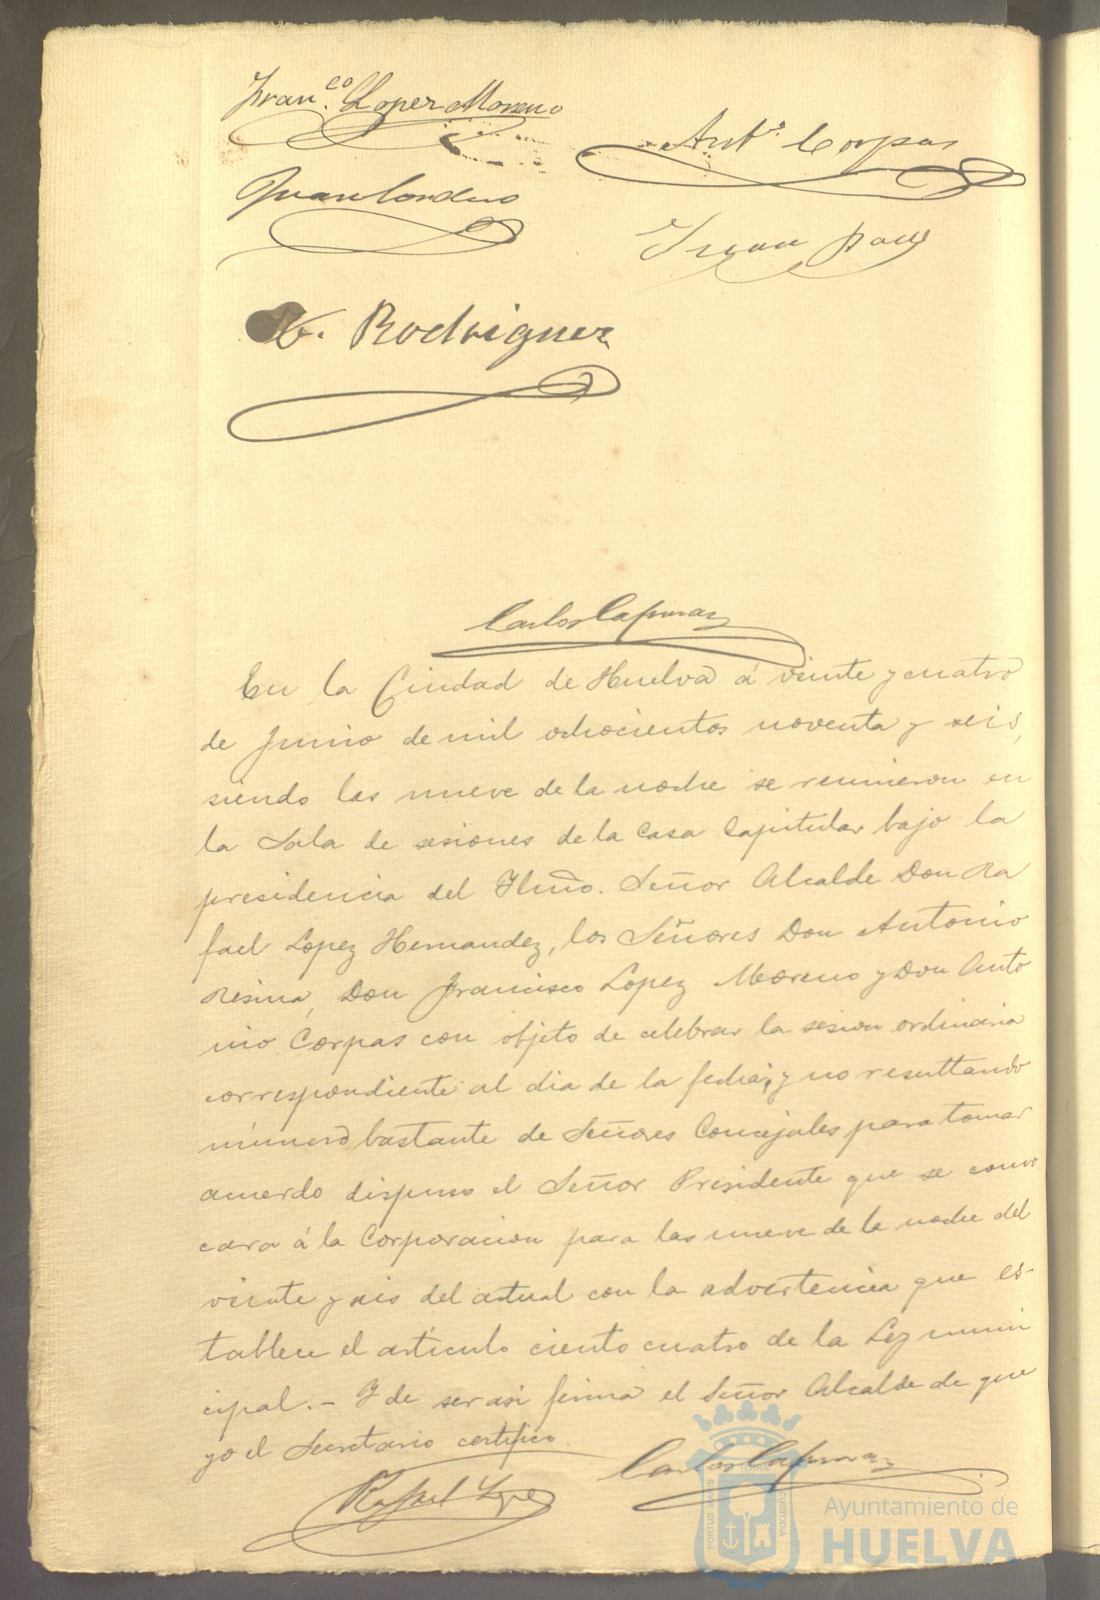 Fran.co Lopez Moreno
Ant.o Corpas
Juan Cordero
Juan
H. Rodriguez
Carlos
En la Ciudad de Huelva á veinte y cuatro
de Junio de mil ochocientos noventa y seis,
siendo las nueve de la noche se reunieron en
la Sala de sesiones de la Casa Capitular bajo la
presidencia del Ylmo. Señor Alcalde Don Ra
fael Lopez Hernandez, los Señores Don Antonio
Resina, Don Francisco Lopez Moreno y Don Anto
nio Corpas con objeto de celebrar la sesion ordinaria
correspondiente al dia de la fecha, y no resultando
número bastante de Señores Concejales para tomar
acuerdo dispuso el Señor Presidente que se convo
cara á la Corporacion para las nueve de la noche del
veinte y seis del actual con la advertencia que es-
tablece el artículo ciento cuatro de la Ley muni
cipal.- Y de ser asi firma el Señor Alcalde de que
yo el Secretario certifico.
Rafael Lopez
Carlos
Ayuntamiento de
HUELVA